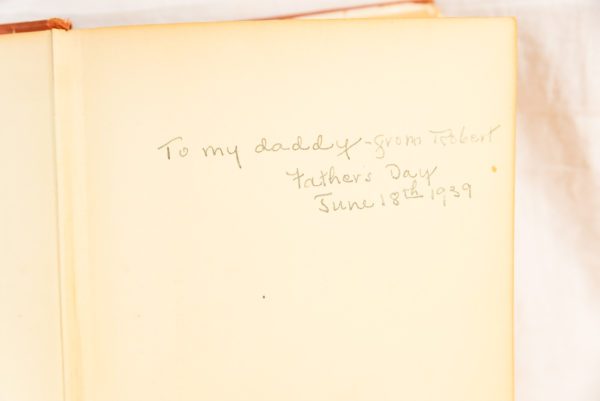 To my daddy - from Robert
Father's Day
June 18th 1939